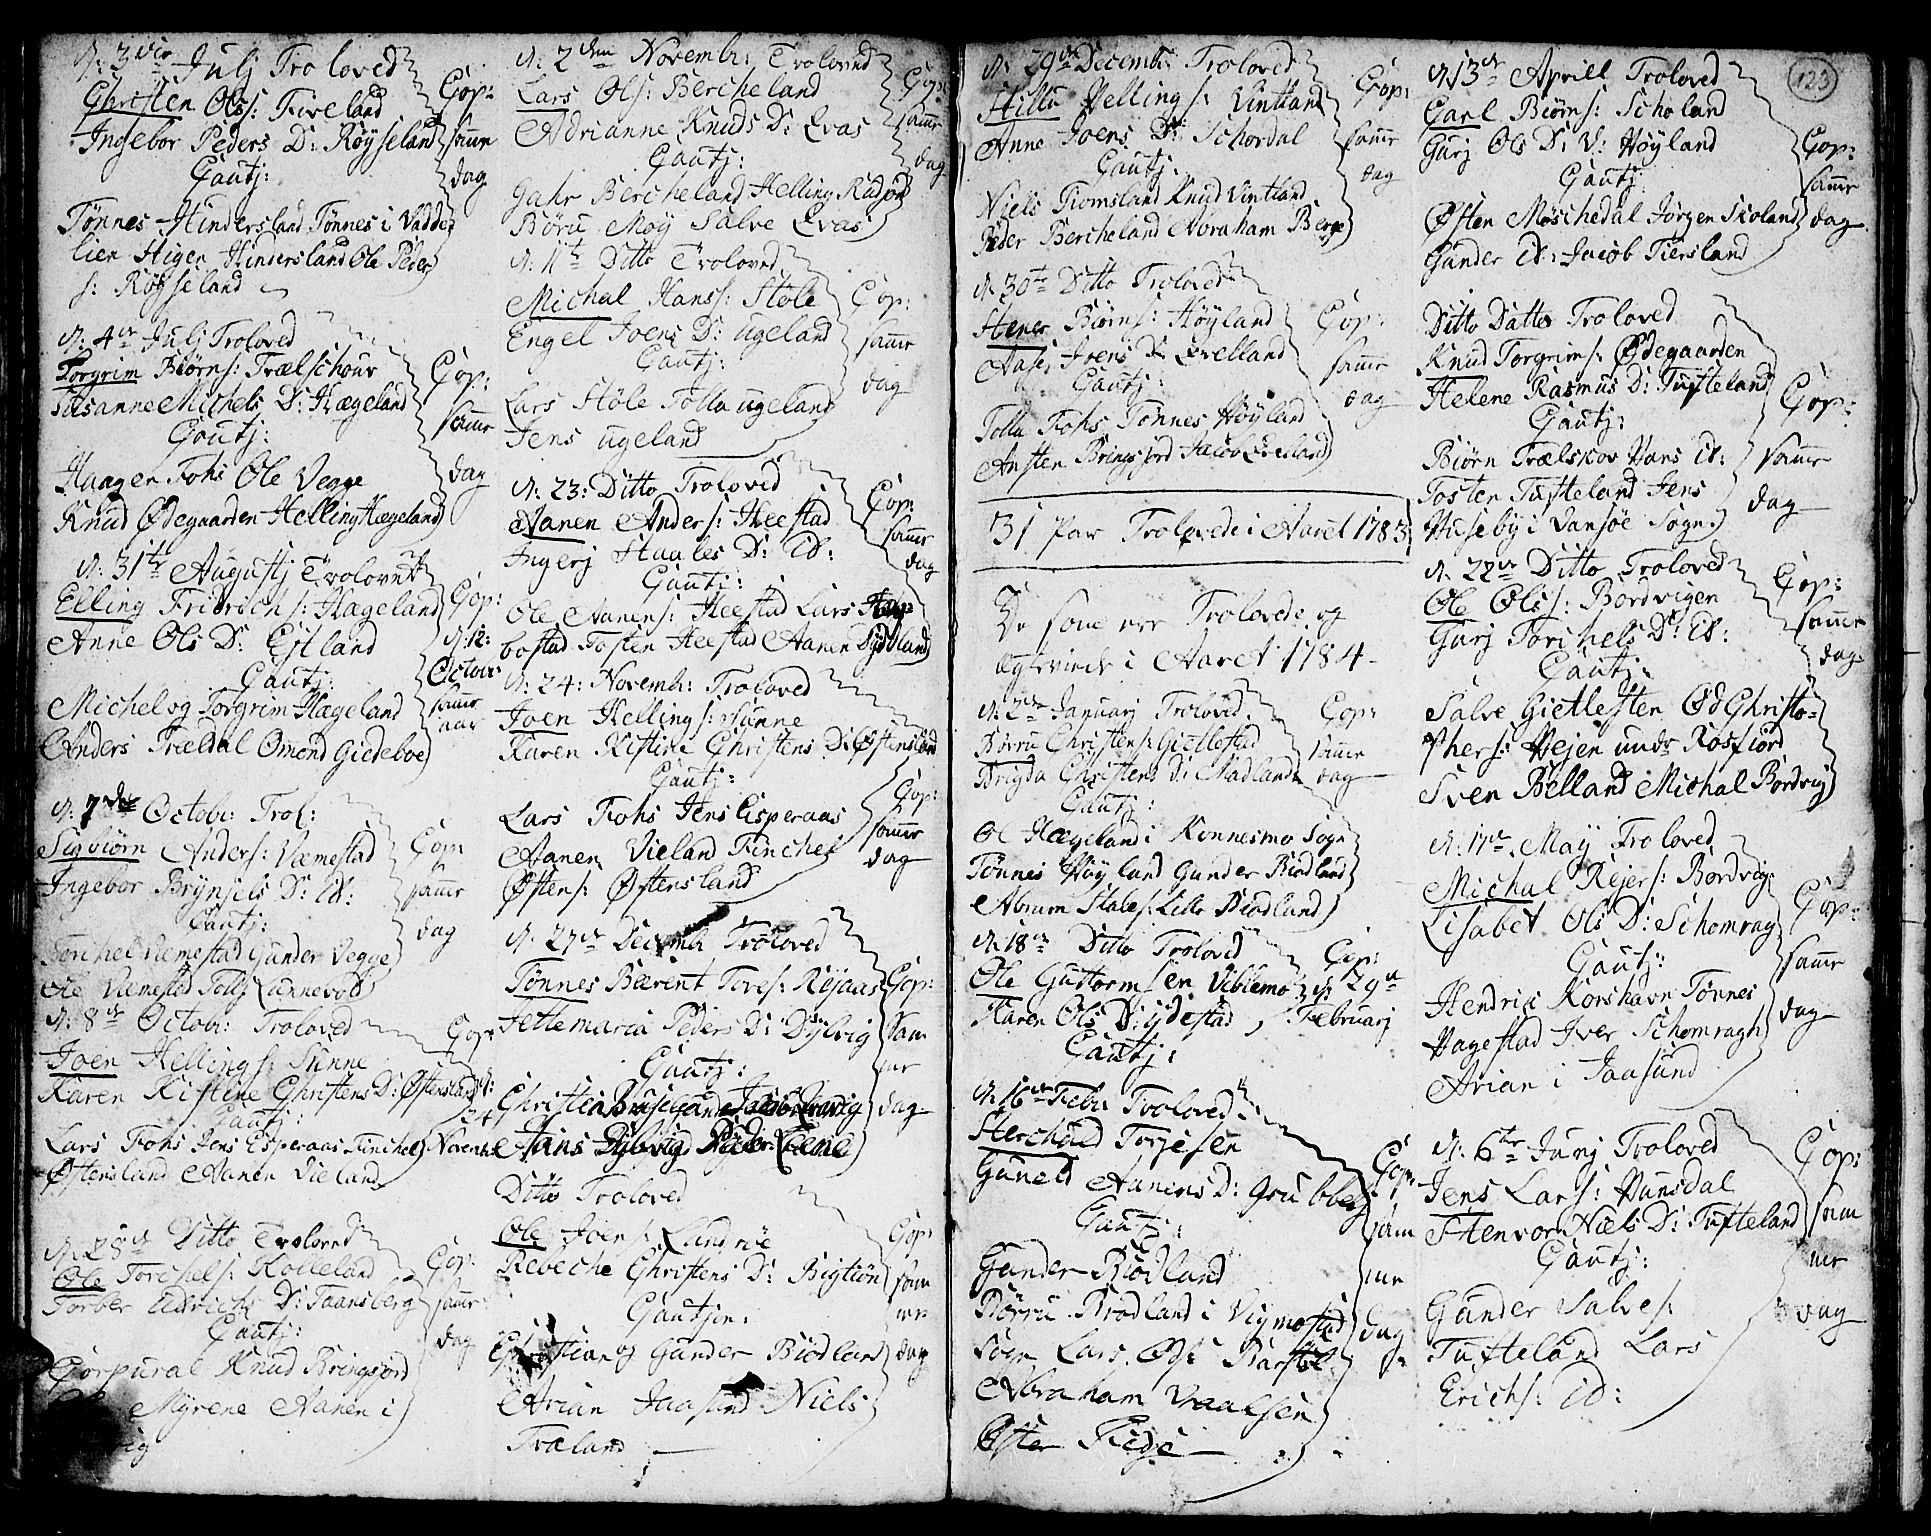 d: 3die Julj Troloved
Christen Olss: Fireland
Ingebor Peders D: Røyseland
Cautj:
Tønnes Hindersland Tønnes i Vadde
lien Higen Hindersland Ole Peder
s: Røyseland
Cop:
samme
dag
d: 4de Julj Troloved
Torgrim Biørns: Trælschour
Susanne Michels D: Hægeland
Cautj:
Haagen Fohs Ole Vegge
Knud Ødegaarden Helling Hægeland
Cop:
samme
dag
d: 31te Augustj Troloved
Elling Fridrichs: Hægeland
Anne Ols D: Eftland
Cautj:
Michel og Torgrim Hægeland
Anders Trældal Omond Giedeboe
Cop:
d: 12:
Octobr:
samme
aar
d: 7de Octobr: Trol:
Sigbiørn Anders: Væmestad
Ingebor Brynjels D: id:
Cautj:
Torchel Væmestad Gunder Vegge
Ole Væmestad Tollj Lunnevold
Cop:
samme
dag
d: 8de Octobr: Troloved
Joen Hellings: Sunne
Karen Kistine Christens D: Østensland
Cautj:
Lars Fohs Jens Esperaas Finchel
Østensland Aanen Vieland
Cop:
d:
24
Novembr:
d: 28de Ditto Troloved
Ole Torchels: Holleland
Torber Eldrichs D: Taansberg
Cautj:
Corpural Knud Bringsiord
Myrene Aanen i
Cop:
samme
dag
d: 2den Novembr: Troloved
Lars Ols: Bercheland
Adrianne Knuds D: Evas
Cautj:
Gahr Bercheland Helling
Børu Moy Salve Evas
Cop:
samme
dag
d: 11te Ditto Troloved
Michal Hanss: Støle
Engel Joens D: Ugeland
Cautj:
Lars Støle Tolla Ugeland
Jens Ugeland
Cop:
samme
dag
d: 23: Ditto Troloved
Aanen Anders: Heestad
Ingerj Staales D: id:
Cautj:
Ole Aanens: Heestad Lars
bostad Tosten Heestad Aanen Dydland
Cop:
samme
dag
d: 24: Novembr: Troloved
Joen Hellings: Sunne
Karen Kistine Christens D: Østensland
Cautj:
Lars Fohs Jens Esperaas
Aanen Vieland Finchel
Østens: Østensland
Cop:
samme
dag
d: 27de Decembr Troloved
Tønnes Bærent Toves: Røjaas
Jetlemaria Peders D: Dylvig
Cautj:
Hans Dybvig Peder
Cop:
sam
me
dag
Ditto Troloved
Ole Joens: Landrøe
Rebeche Christens D: Bigtiøn
Cautjon:
Christian og Gunder Biodland
Arian Jaasund Niels
Træland
Cop:
sam
me
dag
d: 29de Decembr: Troloved
Hillu Hellings: Vintland
Anne Joens D: Schordal
Cautj:
Niels Romsland Knud Vintland
Peder Bercheland Abraham Berge
Cop:
samme
dag
d: 30te Ditto Troloved
Stener Biørns: Høyland
Aase Joens D: Evelland
Cautj:
Tollu Fohs Tønnes Høyland
Austen Bringsiord Jacob Evelland
Cop:
samme
dag
31 Par Trolovede i Aaret 1783
De som ere Trolovede og
ægteviede i Aaret 1784
d: 2den Januarj Troloved
Børru Christens: Giellestad
Brigda Christens D: Nadland
Cautj:
Ol Hægeland i Konnesmo Sogn
Tønnes Høyland Gunder Biodland
Abram Stales: Lille Biodland
Cop:
samme
dag
d: 18de Ditto Troloved
Ole Guttormsen Viblemo
Karen Ols D: Ydestad
Cautj:
Cop:
d: 29de
Februarj
d: 16de Febr: Troloved
Sterchud Torjesen
Guneld Aanens D: Grubbel
Cautj:
Gunder Biødland
Børru Brodland i Vigmostad
Soen Lars Ods Barstel
Abraham Vraalsen
Østen Fiedje
Cop:
sam
me
dag
123
d: 13de Aprill Troloved
Carl Biørns: Scholand
Gurj Ols D: V: Høyland
Cautj:
Østen Møschedal Jørgen Skoland
Gunder id: Jacob Tiersland
Cop:
samme
dag
Ditto Datto Troloved
Knud Torgrims: Ødegaarden
Helene Rasmus D: Tufteland
Cautj:
Biørn Trælskov Hans id:
Tosten Tufteland Jens
Huseby i Vansøe Sogn
Cop:
samme
dag
d: 22de Ditto Troloved
Ole Olss: Bordvigen
Gurj Torchels D: id:
Cautj:
Salve Gietlesten Od Christo=
phers: Vejen unde Rosfiord
Sven Belland Michal Bordvig
Cop:
samme
dag
d: 11te May Troloved
Michal Rejers: Bordvig
Lisabet Ols D: Schomrag
Cautj:
Hendric Korshavn Tønnes
Hagestad Iver Schomragh
Arian i Jaasund
Cop:
samme
dag
d: 6te Junj Troloved
Jens Lars: Hunsdal
Stenvor Niels D: Tufteland
Cautj:
Gunder Salves:
Tufteland Lars
Erichs: id:
Cop:
sam
me
dag